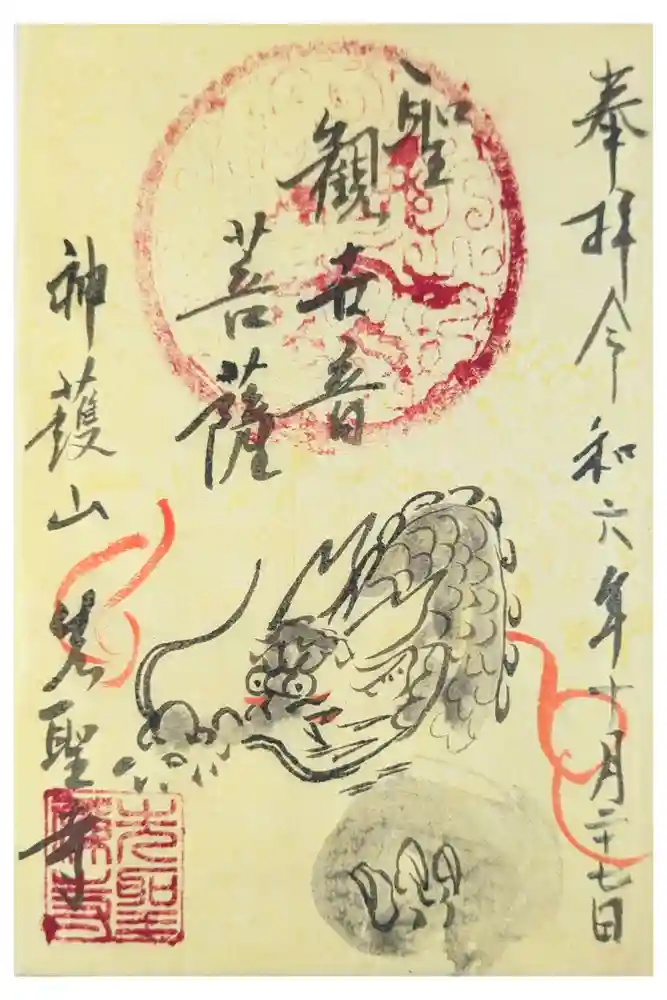 奉拝令和六年十月二十七日
聖
観世音
菩薩
神護山先聖寺
先聖